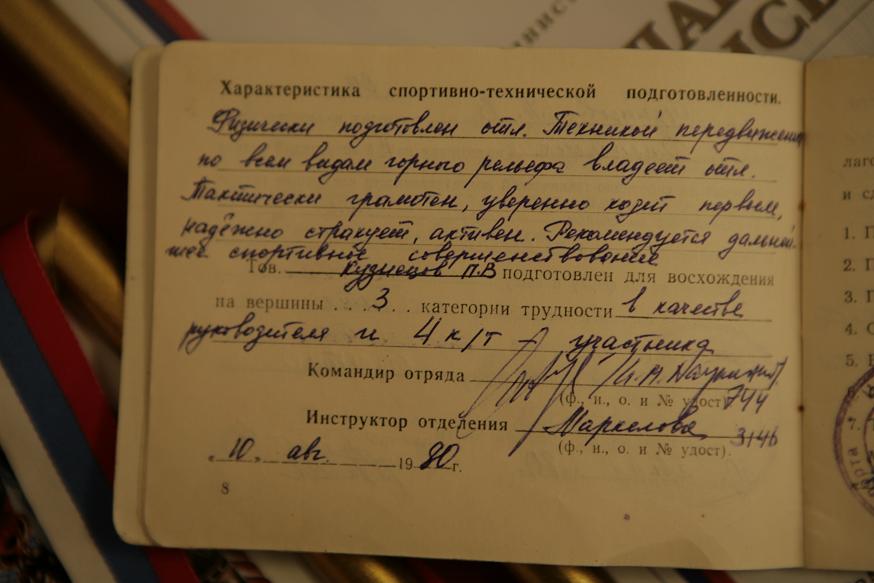 Характеристика спортивно-технической подготовленности.
Физически подготовлен отл. Техникой передвижения
по всем видам горного рельефа владеет отл.
Тактически грамотен, уверенно ходит первым,
надёжно страхует, активен. Рекомендуется дальней-
шее спортивное совершенствование
Тов. Кузнецов П.В подготовлен для восхождения
на вершины 3 категории трудности в качестве
руководителя и 4 к/т – участника
Командир отряда
(ф., и., о. и № удост) 744
Инструктор отделения Маркелова 3146
(ф., и., о. и № удост).
„10„ авг. 1980 г.
8
лаг
и с
1. Г
2. Г
3. Г
4. С
5.